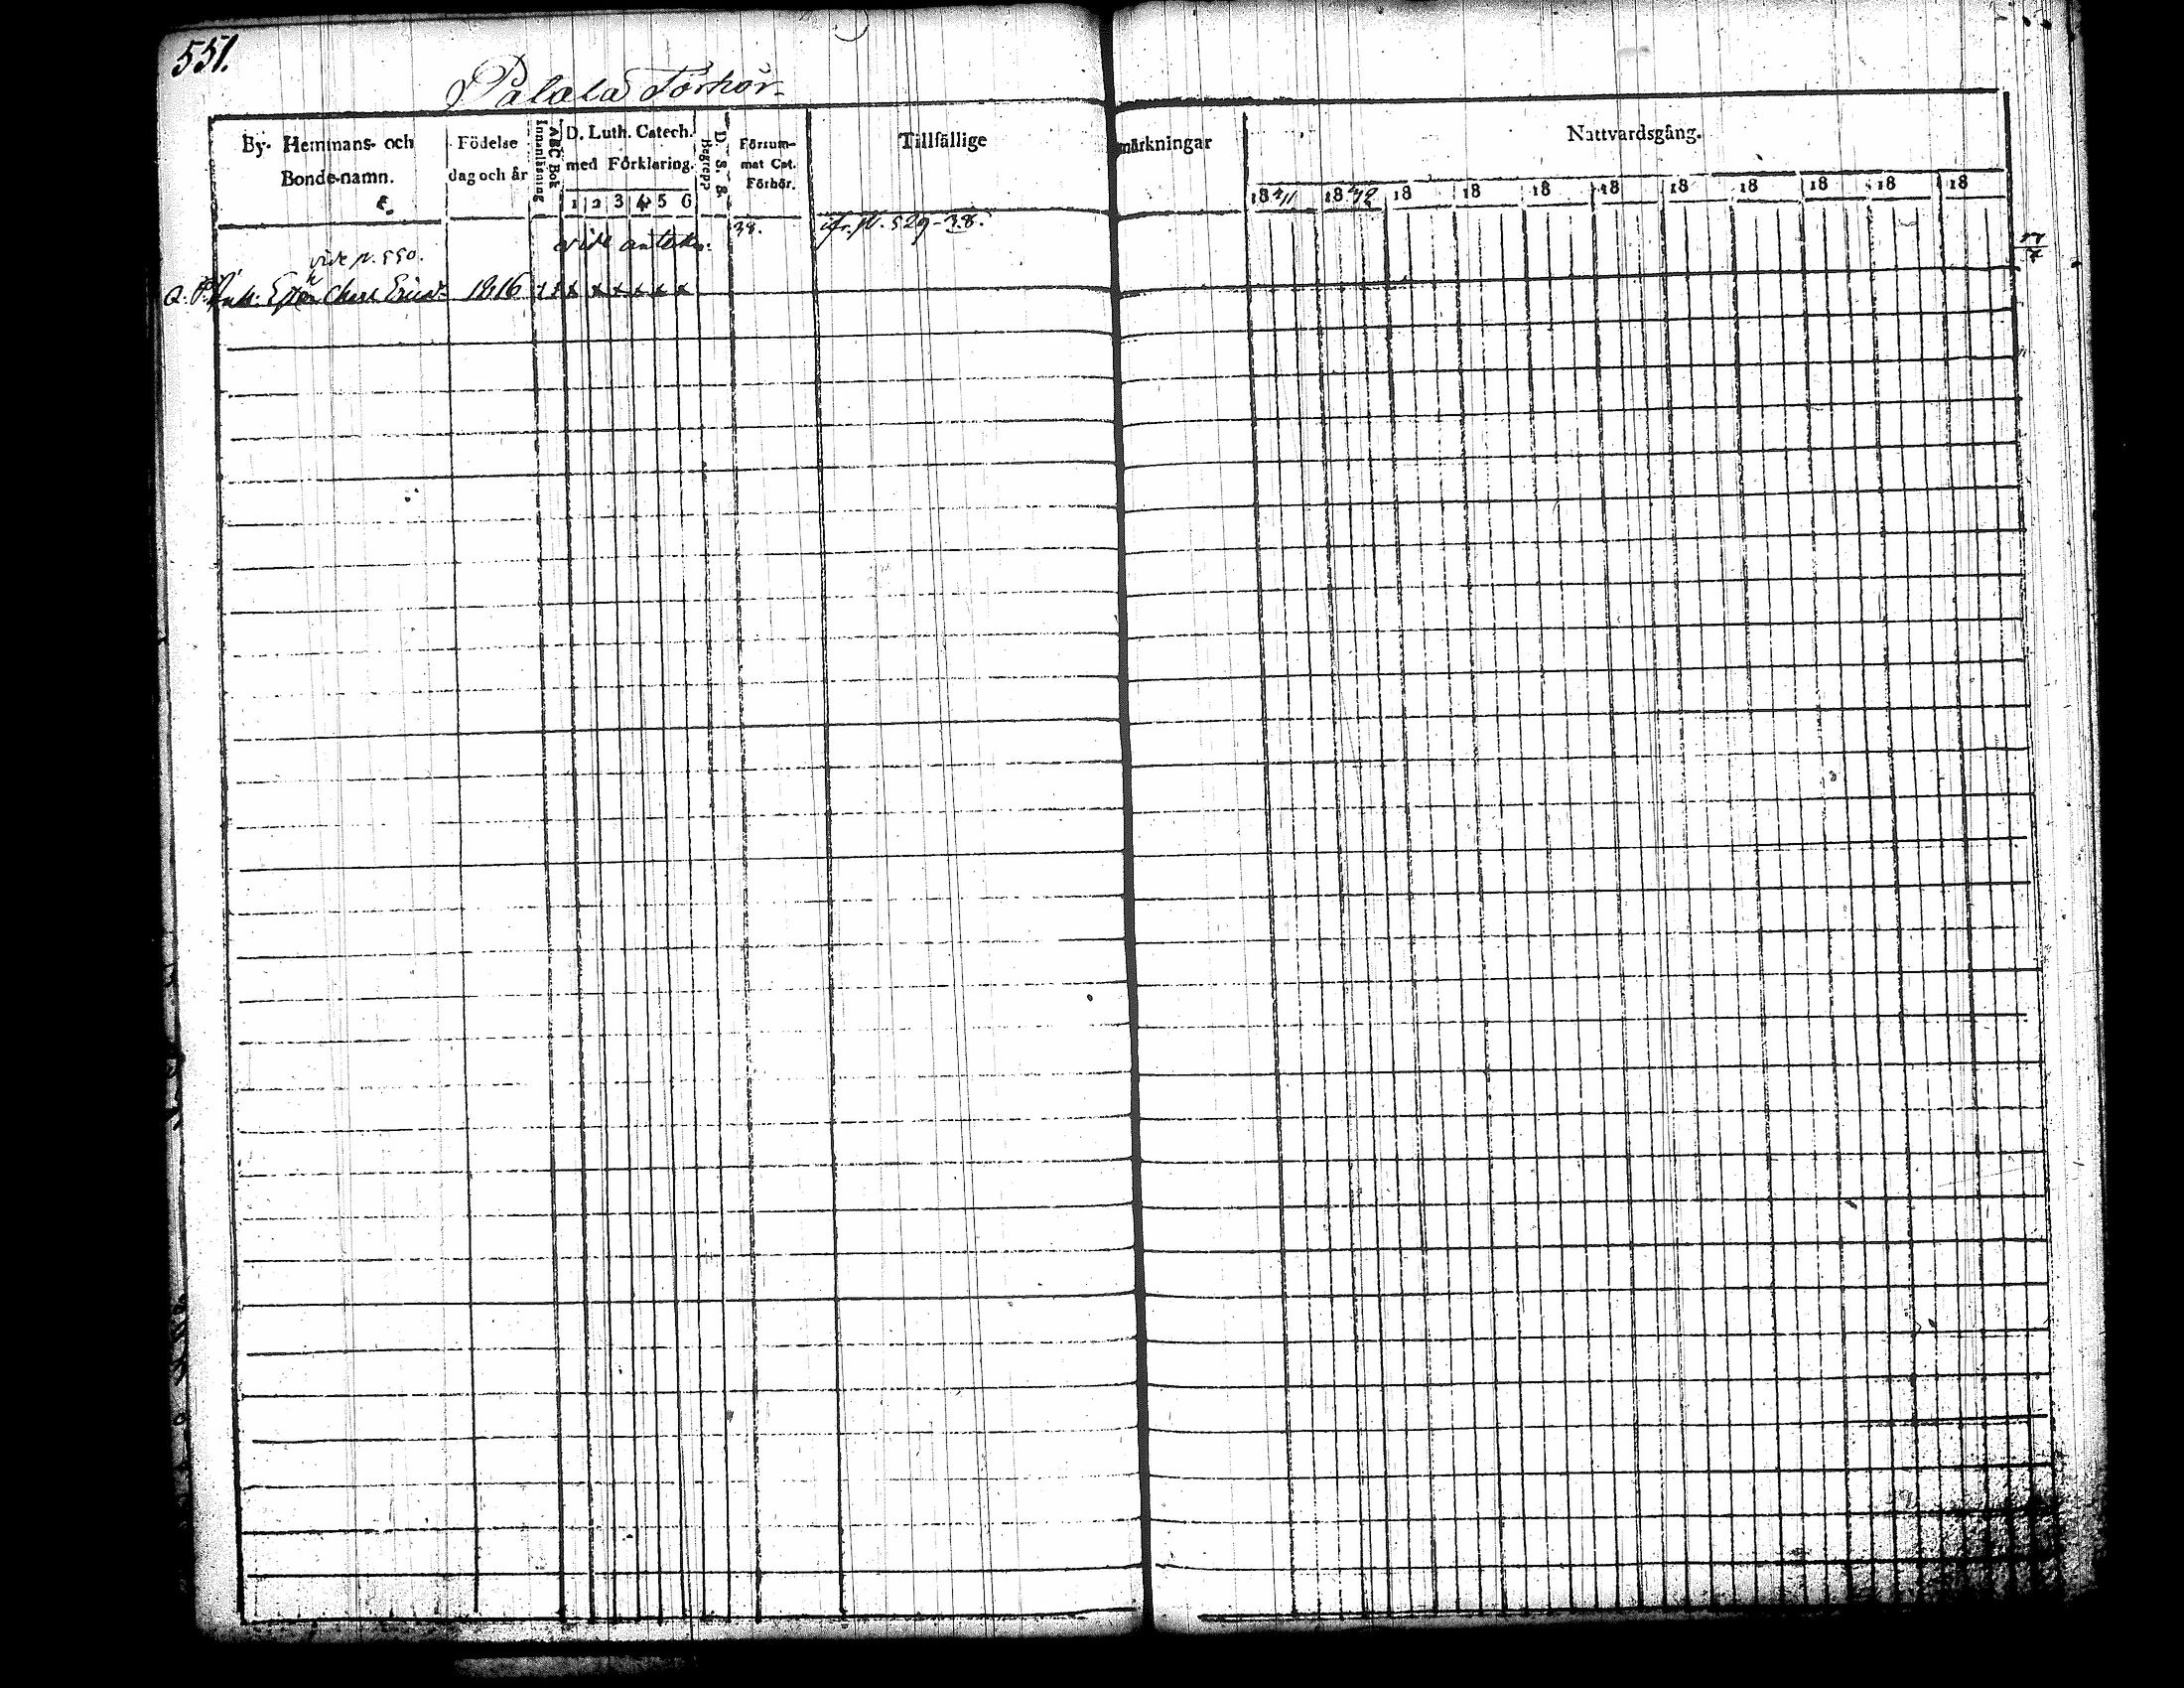 551.
Palala Förhör
By- Hemmans- och
Bonde-namn.
Födelse
dag och år
Innanläsning
ABC Bok
D. Luth. Catech.
med Förklaring.
1 2 3 4 5 6
Begrepp
D. S. B.
Försum-
mat Cat.
Förhör.
Tillfällige
märkningar
Nattvardsgång.
1841 1842 18 18 18 18 18 18 18 18 18
vide p. 550.
vide
38.
fr. p. 529-38.
1816 x x x x x x x x x